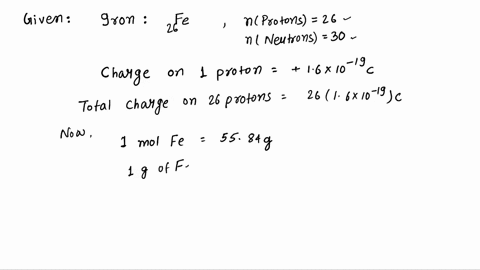 Given: Iron: ₂₆Fe , n(Protons) = 26 ✓
n(Neutrons) = 30 ✓
Charge on 1 proton = + 1.6 × 10⁻¹⁹ C
Total charge on 26 protons = 26 (1.6 × 10⁻¹⁹) C
Now,
1 mol Fe = 55.84 g
1 g of F